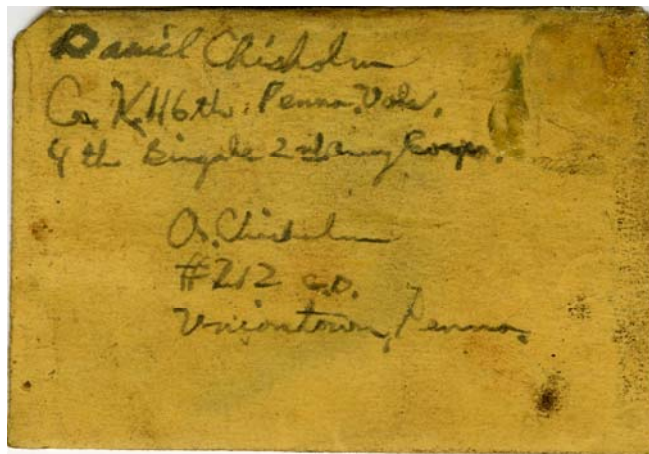 Daniel Chisholm
Co. K 116th. Penna. Vols.
4th Bingade 2nd Army Corps.
A. Chisholm
#212 C.D.
Uniontown, Penna.